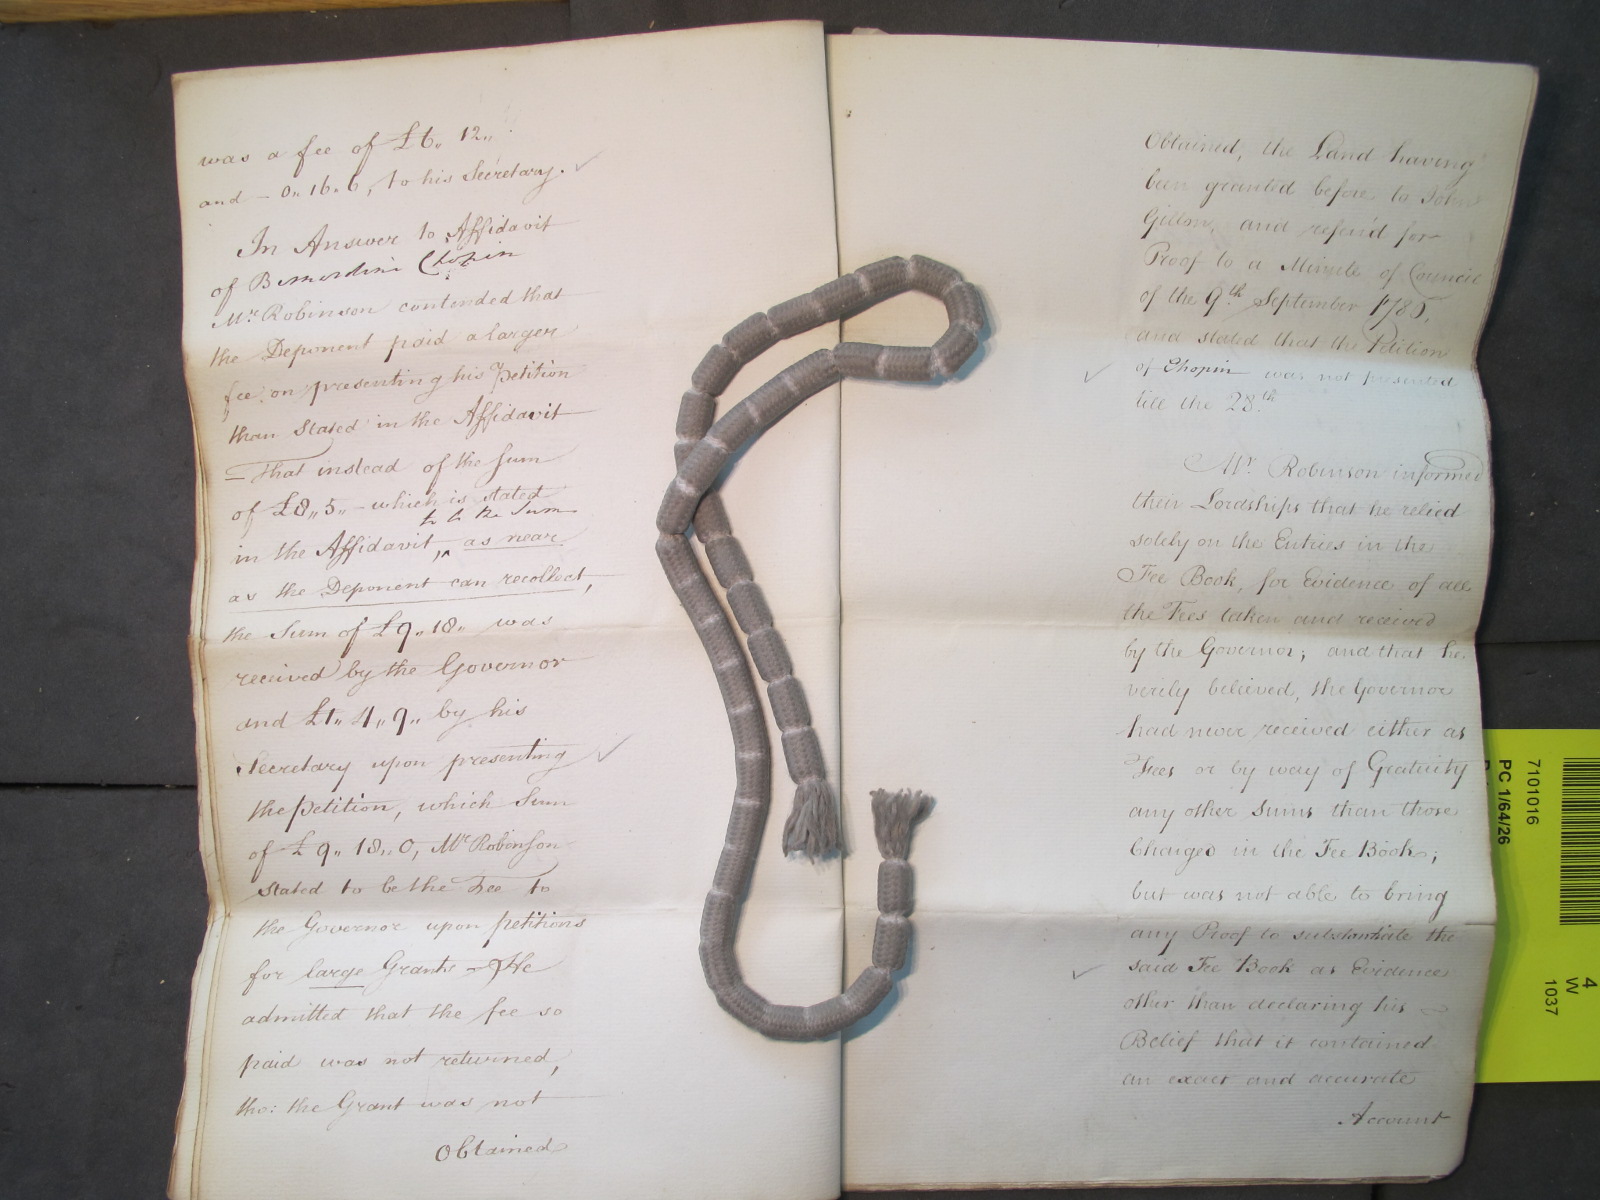 was a fee of £6,, 12,,
and – 0,, 16,, 6, to his Secretary.
In Answer to Affidavit
of Bernardini Chopin
Mr. Robinson contended that
the Deponent paid a larger
fee on presenting his Petition
than Stated in the Affidavit
– That instead of the Sum
of £8,, 5,, – which is stated
to be the Sum
in the Affidavit, as near
as the Deponent can recollect,
the Sum of £9,, 18,, was
received by the Governor
and £1,, 4,, 9,, by his
Secretary upon presenting
the petition, which Sum
of £ 9,, 18,, 0, Mr Robinson
Stated to be the Fee to
the Governor upon petitions
for large Grants – He
admitted that the fee so
paid was not returned,
tho: the Grant was not
Obtained
Obtained, the Land having
been granted before to John
and refer'd for
Proof to a Minute of Council
of the 9th September 1785,
and stated that the Petition
of Chopin was not presented
till the 28th
Mr. Robinson informed
their Lordships that he relied
solely on the Entries in the
Fee Book, for Evidence of all
the Fees taken and received
by the Governor; and that he
verily believed, the Governor
had never received either as
Fees or by way of Gratuity
any other Sums than those
Charged in the Fee Book;
but was not able to bring
any Proof to substantiate the
said Fee Book as Evidence
other than declaring his
Belief that it contained
an exact and accurate
Account
7101016
PC 1/64/26
4
W
1037